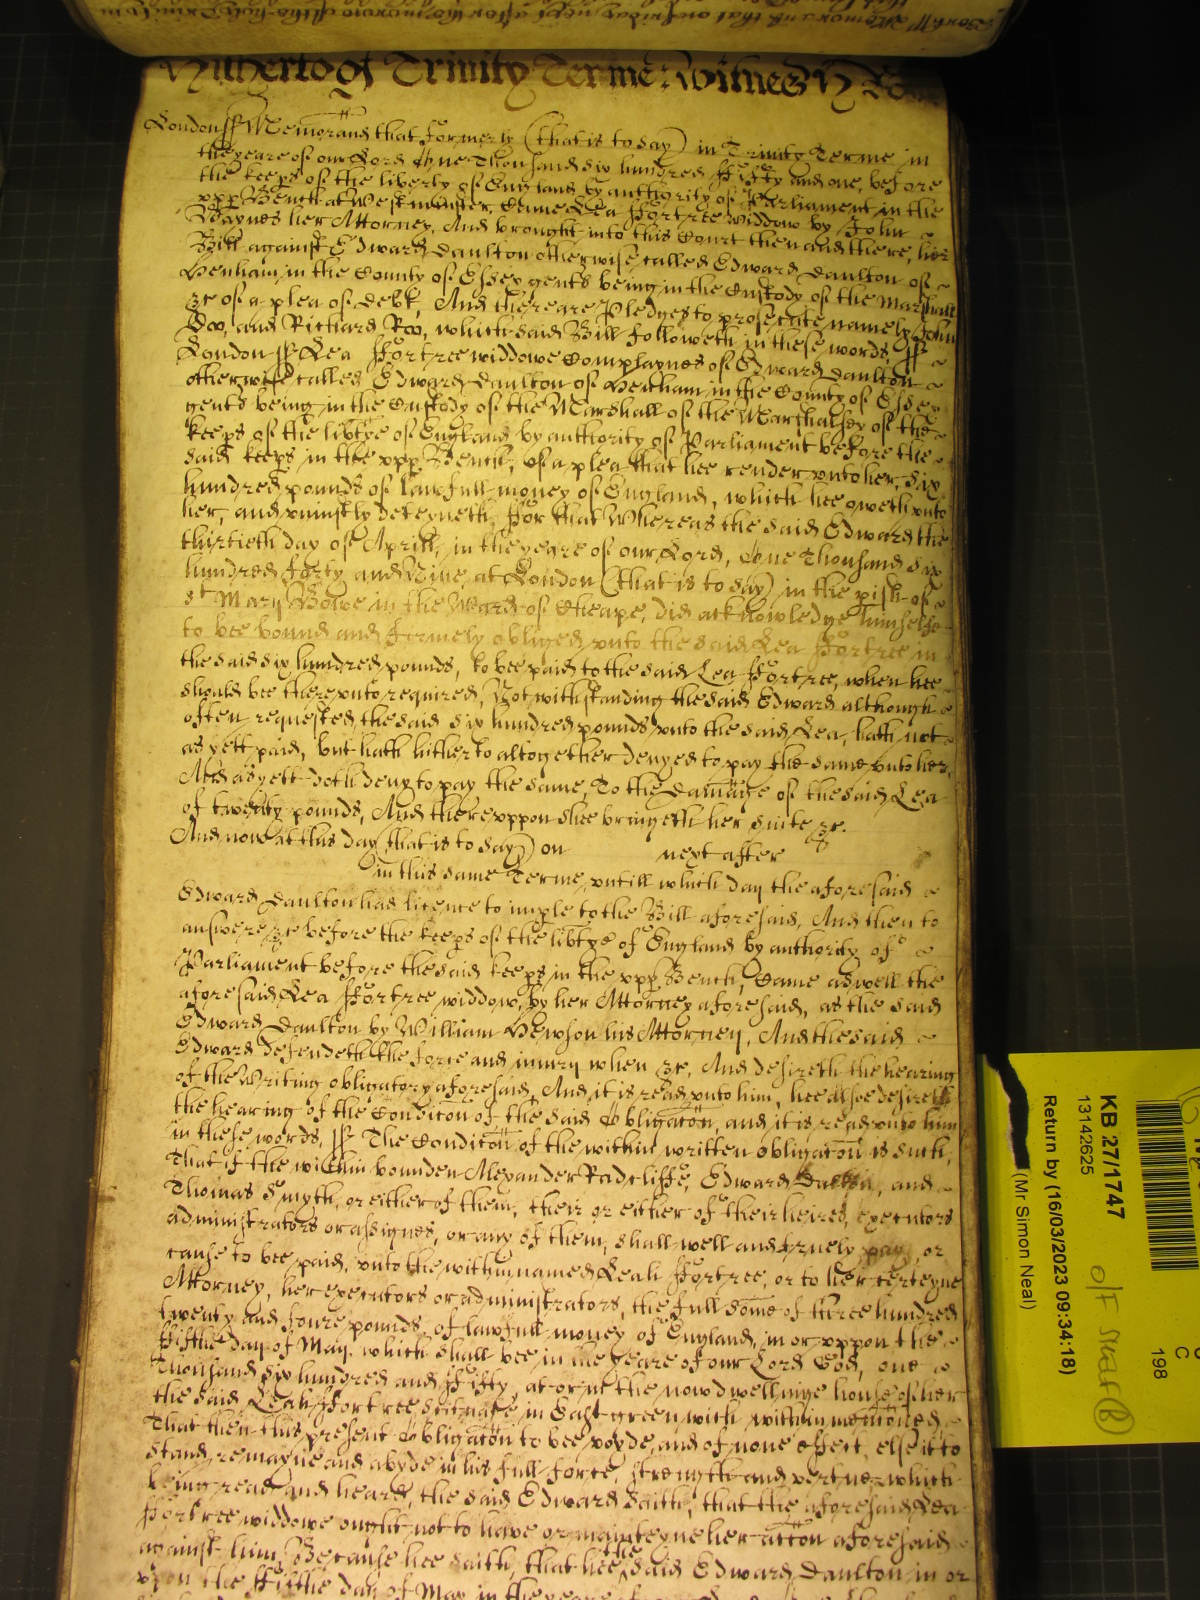 Hitherto of Trinity Terme: Witness H
London ss Memorand that formerly (that is to say) in Trinity Terme in
the yeare of our Lord One Thousand six hundred ffifty and one, before
the keeps of the liberty of England by authority of Parliament in the
upp Bench at Westminster, Came Lea ffortree widdow by John
Baynes her Attorney, And brought into this Court then and there, her
Bill against Edward Daulton otherwise called Edward Daulton of
Henham in the County of Essex gent being in the Custody of the Marshall
&c of a plea of debt, And there are Pledges to prosecute namely John
Doo, and Richard Roo, which said Bill followeth in these words, ss
London ss Lea ffortree widdowe Complaynes of Edward Daulton
otherwise called Edward Daulton of Henham in the County of Essex
gent being in the Custody of the Marshall of the Marshalsey of the
keeps of the libtye of England by authority of Parliament before the
said keeps in the upp Bench, of a plea that hee render unto her, six
hundred pounds of lawfull money of England, which hee oweth unto
her, and uniustly deteyneth, ffor that Whereas the said Edward the
thirtieth day of Aprill, in the yeare of our Lord, One Thousand six
hundred forty and Nine, at London (that is to say) in the pish of
St Mary Bowe in the Ward of Cheape, did acknowledge himselfe
to bee bound and firmely obliged unto the said Lea ffortree in
the said six hundred pounds, to bee paid to the said Lea ffortree, when hee
should bee thereunto required, Notwithstanding the said Edward although
often requested the said six hundred pounds unto the said Lea, hath not
as yett paid, but hath hitherto altogether denyed to pay the same unto her,
And as yett doth deny to pay the same, To the damage of the said Lea
of twenty pounds, And thereuppon shee bringeth her suite &c.
And now at this day (that is to say) on next after
in this same Terme, untill which day the aforesaid
Edward Daulton had licence to imple to the Bill aforesaid, And then to
answere &c before the keeps of the libtye of England by authority of
Parliament before the said keeps in the upp Bench, Came aswell the
aforesaid Lea ffortree widdow, by her Attorney aforesaid, as the said
Edward Daulton by William Hewson his Attorney, And the said
Edward defendeth the force and iniury when &c, And desireth the hearing
of the Writing obligatory aforesaid, And it is read unto him, hee alsoe desireth
the hearing of the Condicon of the said Obligacon, and it is read unto him
in these words, ss The Condicon of the within written obligacon is such,
That if the within bounden Alexander Radcliffe, Edward, and
Thomas Smyth, or either of them, their or either of their heires, executors
administrators or assignes, or any of them, shall well and truely pay, or
cause to bee paid, unto the within named Leah ffortree, or to her certeyne
Attorney, her executors or administrators, the full some of three hundred
twenty and foure pounds, of lawfull money of England, in or uppon the
ffifthe day of May, which shall bee in the yeare of our Lord God, one
Thousand six hundred and ffifty, at or in the now dwellinge house of her
the said Leah ffortree scituate in East greenwich within menconed
That then this present Obligacon to bee voyde, and of none effect, else it to
stand, remayne and abyde in his full force, strength and vertue, which
being read and heard, the said Edward saith, that the aforesaid Lea
ffortree widdowe ought not to have or mainteyne her accon aforesaid
against him, Because hee saith, that hee the said Edward Daulton in or
upon the ffifthe day of May in the yeare
KB 27/1747
13142625
Return by (16/03/2023 09:34:18)
(Mr Simon Neal)
198
C